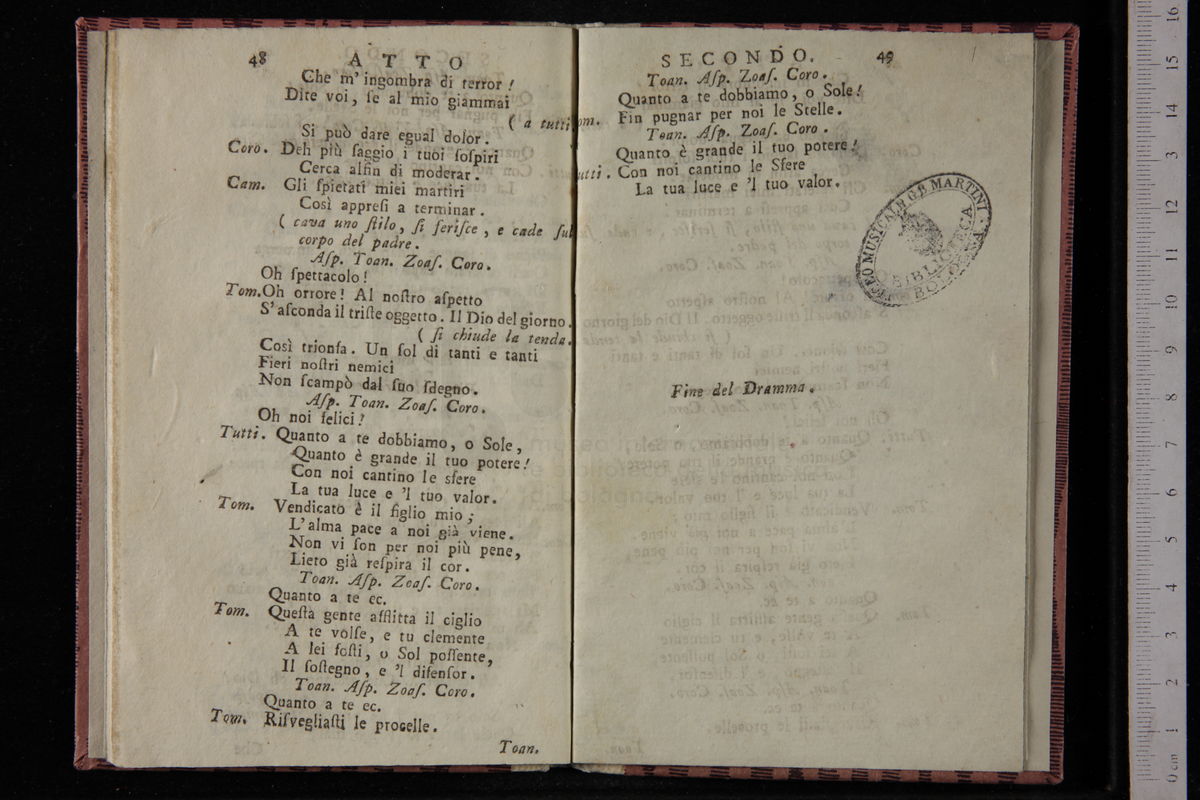 48 ATTO
Che m' ingombra di terror!
Dite voi, ſe al mio giammai
( a tutti
Si può dare egual dolor.
Coro. Deh più ſaggio i tuoi ſoſpiri
Cerca alfin di moderar.
Cam. Gli ſpietati miei martiri
Così appreſi a terminar.
( cava uno ſtilo, ſi feriſce, e cade ſul
corpo del padre.
Aſp. Toan. Zoaſ. Coro.
Oh ſpettacolo!
Tom. Oh orrore! Al noſtro aſpetto
S' aſconda il triſte oggetto. Il Dio del giorno.
( ſi chiude la tenda.
Così trionfa. Un ſol di tanti e tanti
Fieri noſtri nemici
Non ſcampò dal ſuo ſdegno.
Aſp. Toan. Zoaſ. Coro.
Oh noi felici!
Tutti. Quanto a te dobbiamo, o Sole,
Quanto è grande il tuo potere!
Con noi cantino le sfere
La tua luce e 'l tuo valor.
Tom. Vendicato è il figlio mio;
L' alma pace a noi già viene.
Non vi ſon per noi più pene,
Lieto già reſpira il cor.
Toan. Aſp. Zoaſ. Coro.
Quanto a te ec.
Tom. Queſta gente afflitta il ciglio
A te volſe, e tu clemente
A lei foſti, o Sol poſſente,
Il ſoſtegno, e 'l difenſor.
Toan. Aſp. Zoaſ. Coro.
Quanto a te ec.
Tom. Riſvegliaſti le procelle.
Toan.
SECONDO. 49
Toan. Aſp. Zoaſ. Coro.
Quanto a te dobbiamo, o Sole!
om. Fin pugnar per noi le Stelle.
Toan. Aſp. Zoaſ. Coro.
Quanto è grande il tuo potere!
utti. Con noi cantino le Sfere
La tua luce e 'l tuo valor.
MUSEO MUSICALE G.B. MARTINI
BIBLIOTECA
BOLOGNA
Fine del Dramma.